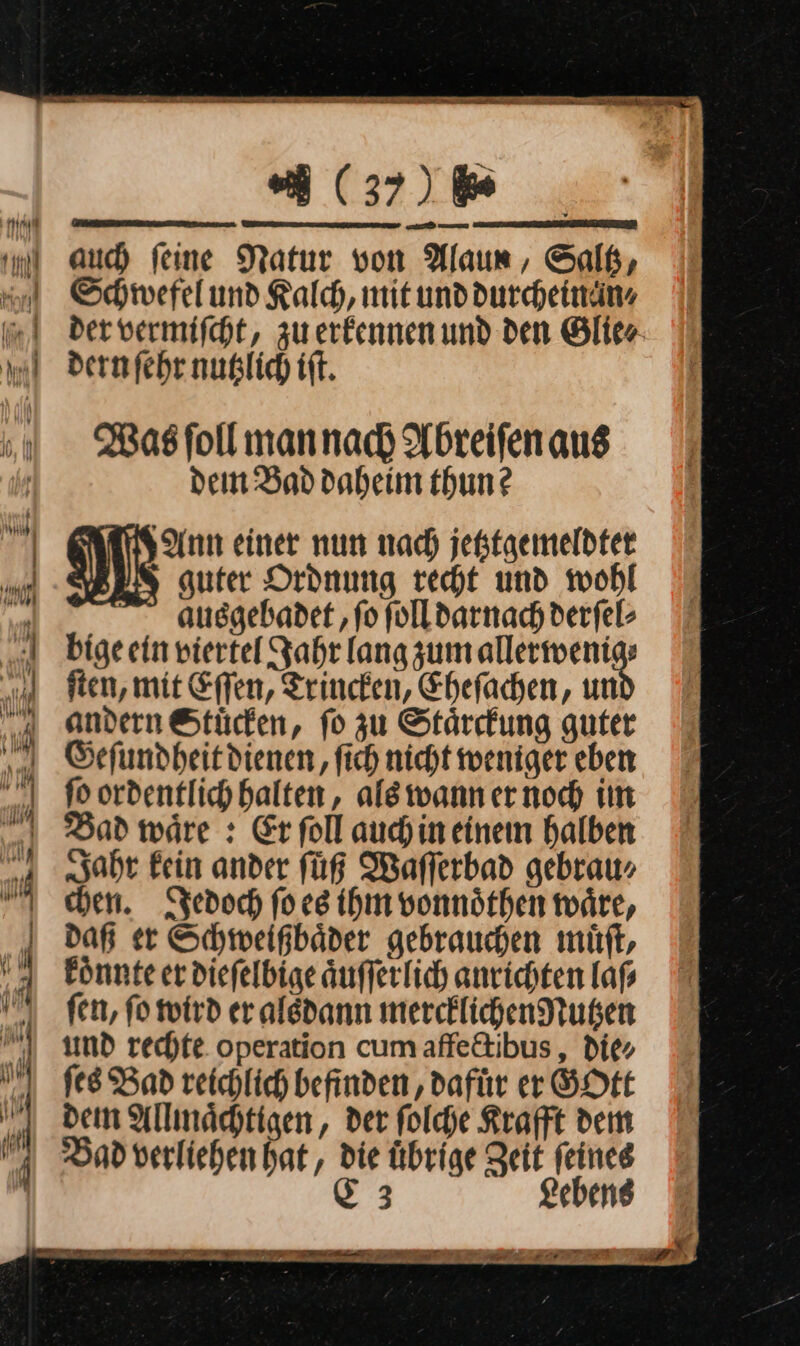 (37)
auch ſeine Natur von Alaun, Saltz,
Schwefel und Kalch, mit und durcheinan⸗
der vermiſcht, zu erkennen und den Glie⸗
dern ſehr nutzlich iſt.
Was ſoll man nach Abreiſen aus
dem Bad daheim thun?
WAnn einer nun nach jetztgemeldter
guter Ordnung recht und wohl
ausgebadet, ſo ſoll darnach derſel⸗
bige ein viertel Jahr lang zum allerwenig⸗
ſten, mit Eſſen, Trincken, Eheſachen, und
andern Stuͤcken, ſo zu Staͤrckung guter
Geſundheit dienen, ſich nicht weniger eben
ſo ordentlich halten, als wann er noch im
Bad waͤre : Er ſoll auch in einem halben
Jahr kein ander ſuͤß Waſſerbad gebrau⸗
chen. Jedoch ſo es ihm vonnoͤthen waͤre,
daß er Schweißbaͤder gebrauchen muͤſt,
koͤnnte er dieſelbige aͤuſſerlich anrichten laſ⸗
ſen, ſo wird er alsdann mercklichen Nutzen
und rechte operation cum affectibus, die⸗
ſes Bad reichlich befinden, dafuͤr er GOtt
dem Allmaͤchtigen, der ſolche Krafft dem
Bad verliehen hat, die uͤbrige Zeit ſeines
C 3 Lebens